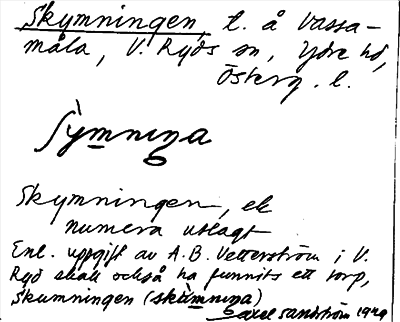 Skymningen, t. å Vassa-
måla, V. Ryds sn, Ydre hd,
Österg. l.
Skymningen, ek
numera utlagt
Enl. uppgift av A.B. Vetterström i V.
Ryd skall också ha funnits ett torp,
Skumningen (skùmnina)
Axel Sandström 1929